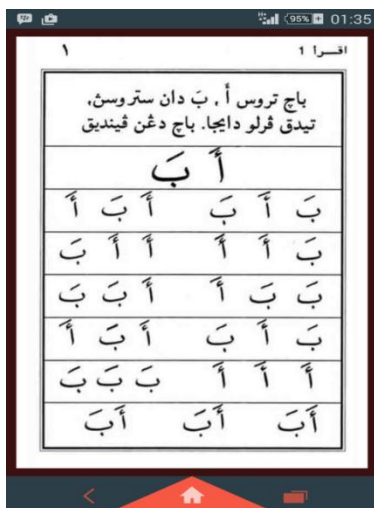 95% 01:35
اقــرأ 1 ١
باچ تروس أ , بَ دان ستروسڽ,
تيدق ڤرلو دايجا. باچ دڠن ڤينديق
أَ بَ
بَ أَ بَ أَ بَ أَ
بَ أَ أَ أَ أَ بَ
بَ بَ أَ أَ بَ بَ
بَ أَ بَ أَ بَ أَ
أَ أَ أَ بَ بَ بَ
أَبَ أَبَ أَبَ